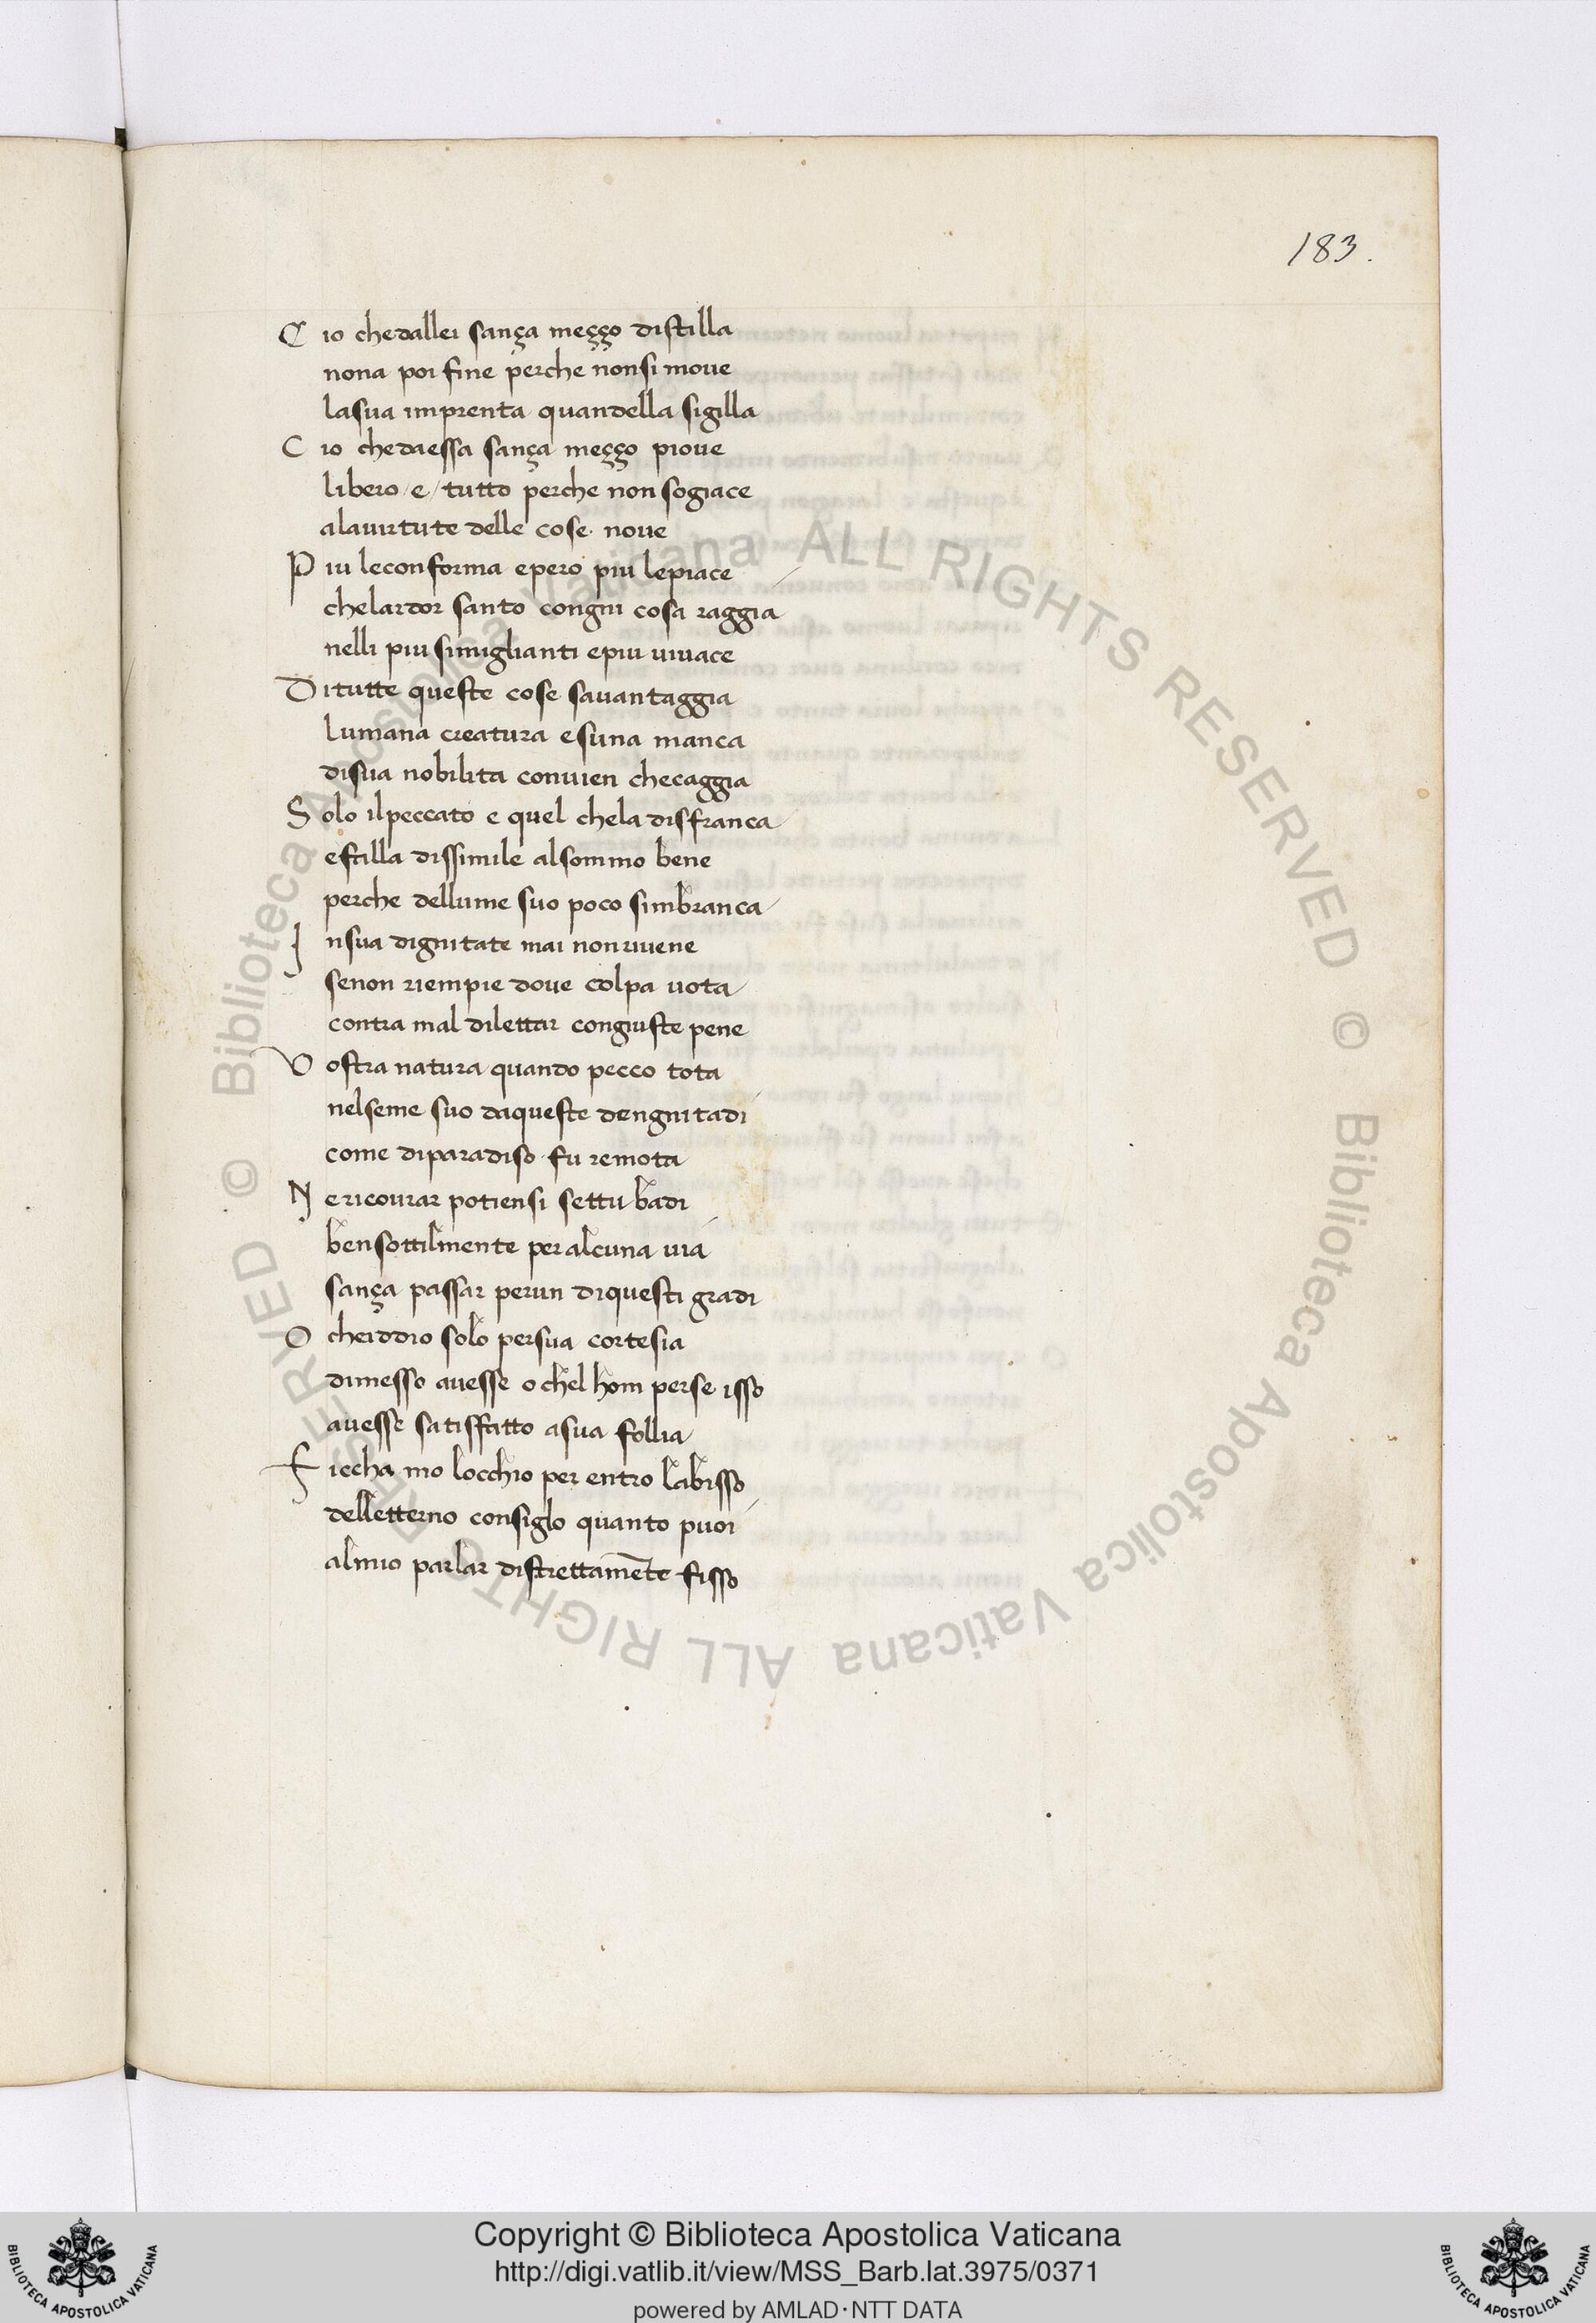 183.
C io chedallei sança meçço distilla
nona poi fine perche nonsi moue
lasua imprenta quandella sigilla
C io chedaessa sança meçço pioue
libero / e / tutto perche non sogiace
alauirtute delle cose noue
P iu leconforma epero piu lepiace
chelardor santo congni cosa raggia
nelli piu simiglianti epiu uiuace
D itutte queste cose sauantaggia
lumana creatura esuna manca
disua nobilita conuien checaggia
S olo ilpeccato e quel chela disfranca
efalla dissimile alsommo bene
perche dellume suo poco simbranca
I nsua dignitate mai nonriuene
senon riempie doue colpa uota
contra mal dilettar congiuste pene
V ostra natura quando pecco tota
nelseme suo daqueste dengnitadi
come diparadiso fu remota
N e ricourar potiensi settu badi
bensottilmente per alcuna uia
sança passar perun diquesti gradi
O cheiddio solo persua cortesia
dimesso auesse o chel hom perse isso
auesse satisffatto asua follia
F iccha mo locchio per entro labisso
delletterno consiglo quanto puoi
almio parlar distrettamẽte fisso
© Biblioteca Apostolica Vaticana ALL RIGHTS RESERVED © Biblioteca Apostolica Vaticana ALL RIGHTS RESERVED
BIBLIOTECA APOSTOLICA VATICANA
Copyright © Biblioteca Apostolica Vaticana
http://digi.vatlib.it/view/MSS_Barb.lat.3975/0371
powered by AMLAD·NTT DATA
BIBLIOTECA APOSTOLICA VATICANA